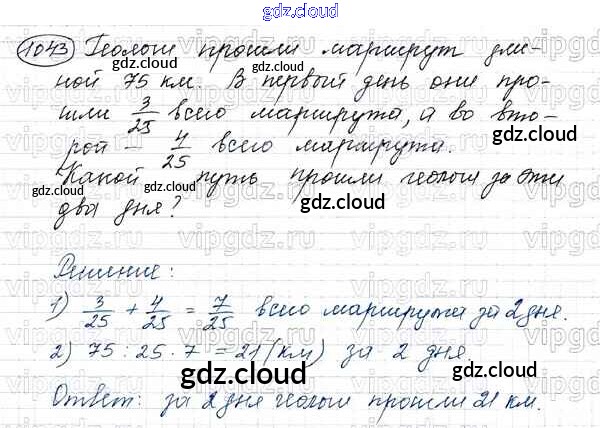 gdz.cloud
1043 Геологи прошли маршрут дли-
ной 75 км. В первый день они про-
шли 3/25 всего маршрута, а во вто-
рой - 4/25 всего маршрута.
Какой путь прошли геологи за эти
два дня?
Решение:
1) 3/25 + 4/25 = 7/25 всего маршрута за 2 дня.
2) 75 : 25 · 7 = 21 (км) за 2 дня
Ответ: за 2 дня геологи прошли 21 км.
gdz.cloud
gdz.cloud
gdz.cloud
gdz.cloud
gdz.cloud
gdz.cloud
gdz.cloud
gdz.cloud